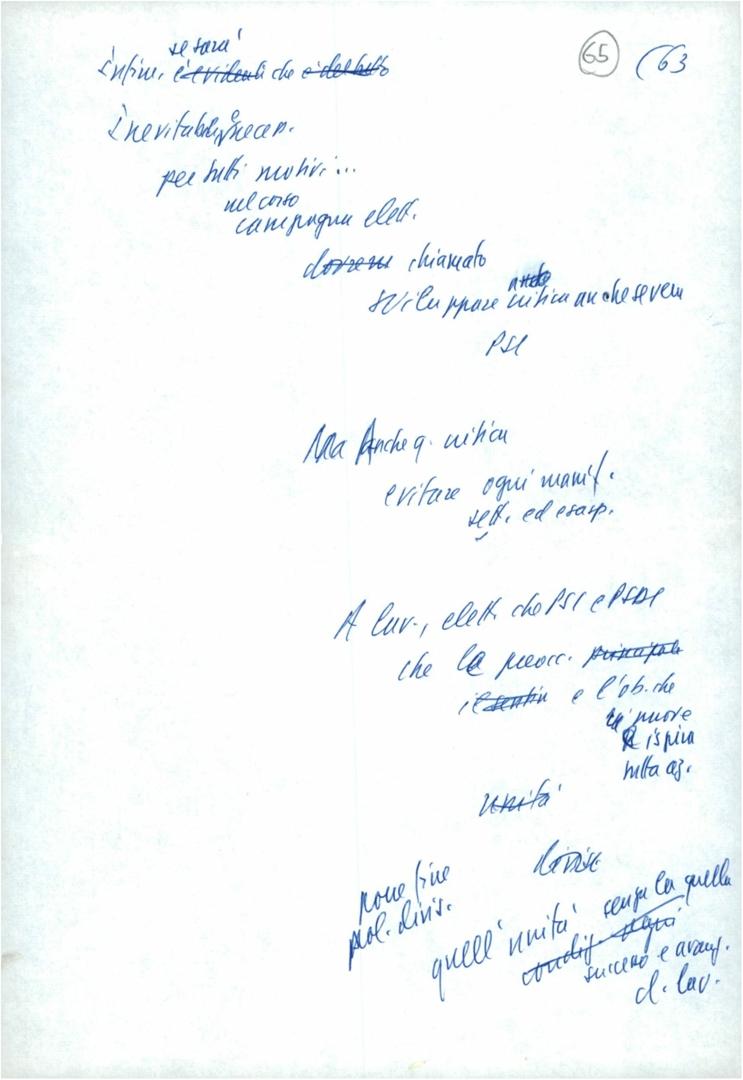 65 (63
se sarà
infine, è evidente che è del tutto
inevitabile, necess.
per tutti motivi...
nel corso
campagna elett.
chiamato
sviluppare critica anche se vem
PSI
Ma Anche q. critica
evitare ogni manif.
sett. ed esasp.
A lav., elett. che PSI e PSDI
che la preocc. principale
il e l'ob. che
ci muove
e ispira
tutta az.
unità
divise
pone fine
divis.
quell'unità senza la quella
condiz. ogni
successo e avanz.
d. lav.